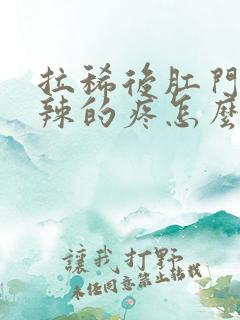 拉稀後肛門
辣的疼怎麼
讓我打野
未經同意禁止轉載